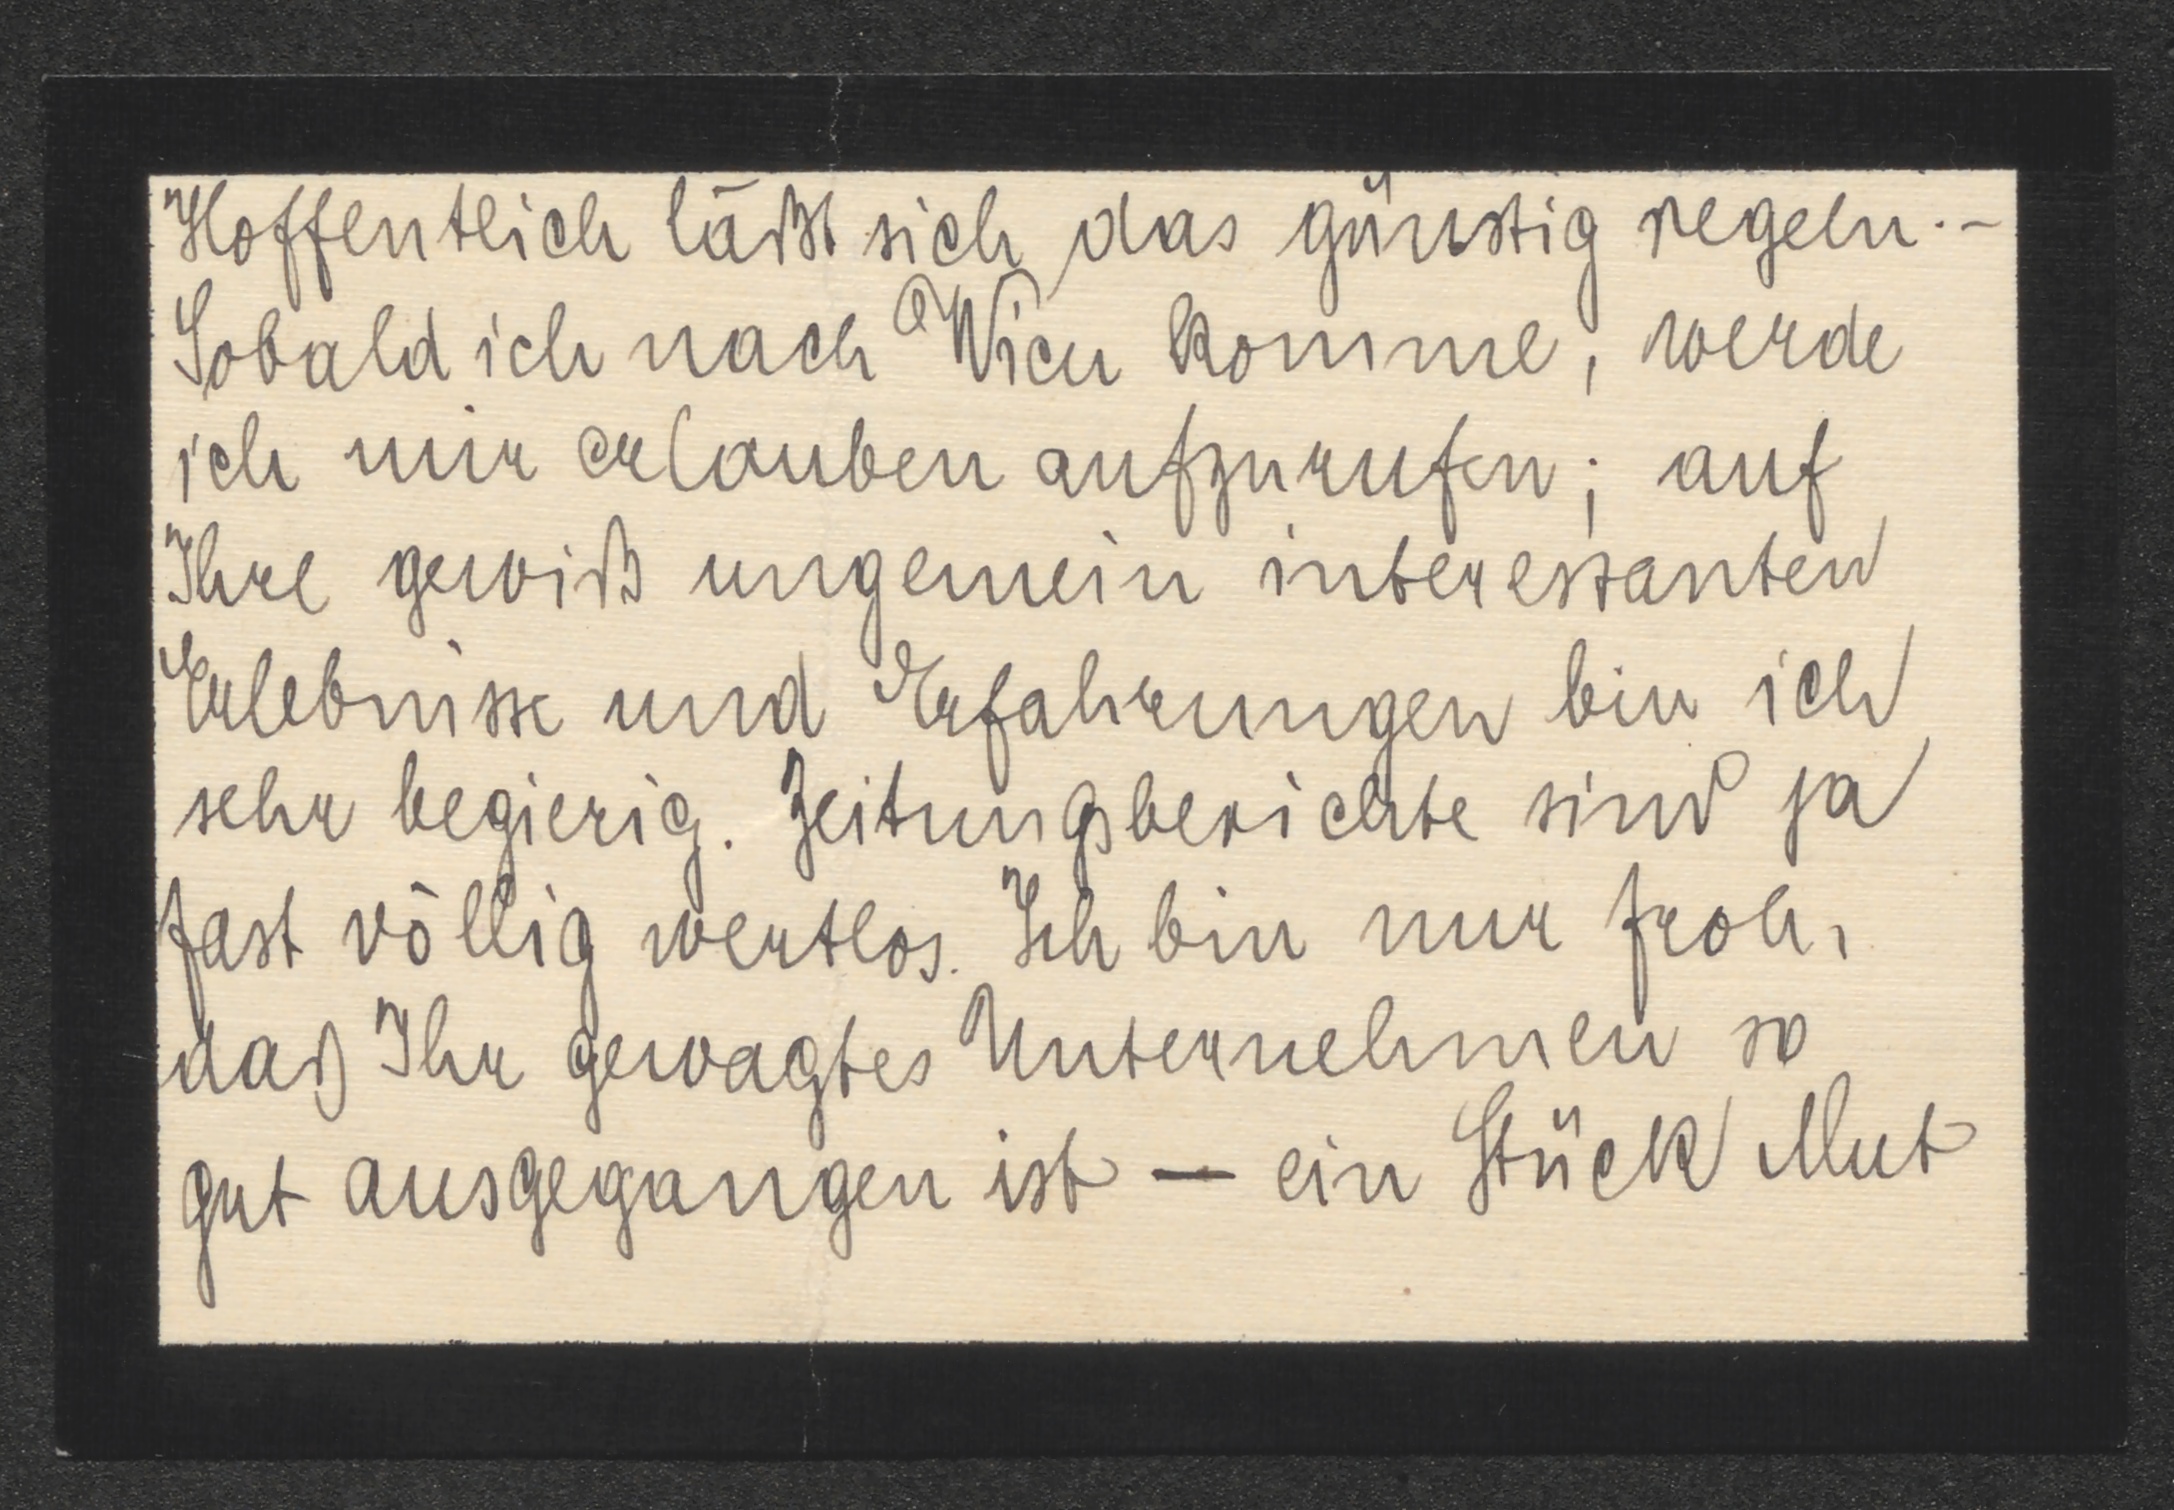 Hoffentlich läßt sich das günstig regeln. –
Sobald ich nach Wien komme, werde
ich mir erlauben aufzurufen; auf
Ihre gewiß ungemein interessanten
Erlebnisse und Erfahrungen bin ich
sehr begierig. Zeitungsberichte sind ja
fast völlig wertlos. Ich bin nur froh,
daß Ihr gewagtes Unternehmen so
gut ausgegangen ist — ein Stück Mut